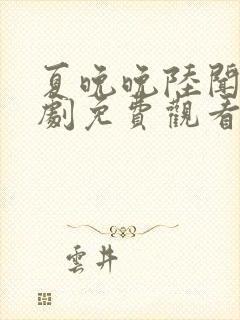 夏晚晚陸聞
劇免費觀看
雲井